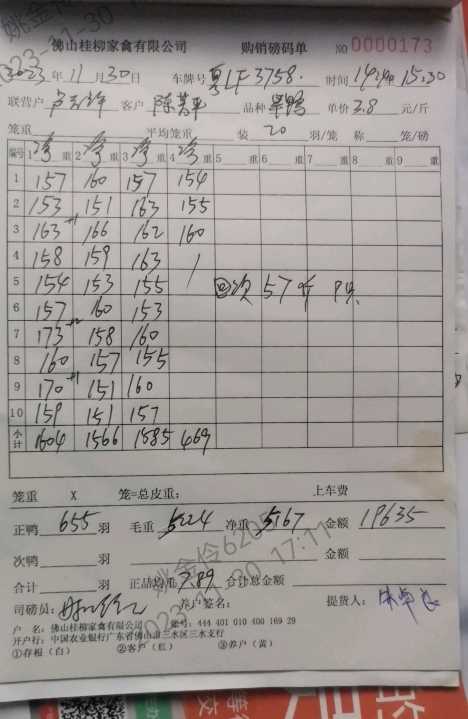 佛山桂柳家禽有限公司 购销磅码单 NO 0000173
2023年11月30日 车牌号 粤LF3758. 时间 15:30
联营户 客户 陈芳平 品种 单价 3.8 元/斤
笼重 平均笼重 装 20 羽/笼 称 笼/磅
编号 1 重 2 重 3 重 4 重 5 重 6 重 7 重 8 重 9 重
1 157 160 157 154
2 153 151 163 155
3 163 166 162 160
4 158 159 163
5 154 153 155 57斤
6 157 160 153
7 173 158 160
8 160 157 155
9 170 151 160
10 159 151 157
小计 1604 1566 1585 469
笼重 X 笼=总皮重: 上车费
正鸭 655 羽 毛重 5224 净重 5167 金额 19635
次鸭 羽 金额
合计 羽 正品均重 7.89 合计总金额
司磅员: 养户签名: 提货人:
户 名: 佛山桂柳家禽有限公司 账号: 444 401 010 400 169 29
开户行: 中国农业银行广东省佛山市三水区三水支行
①存根(白) ②客户(红) ③养户(黄)
姚金伶6205
2023-11-30 17:11